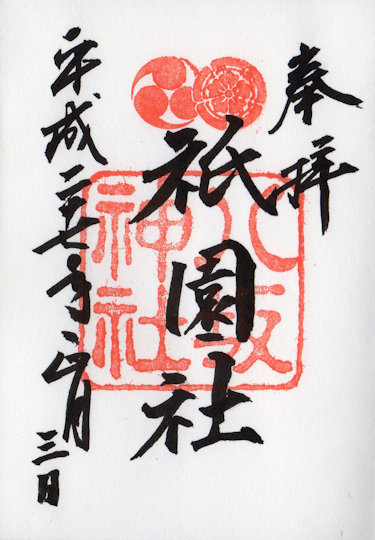 奉拝
祇園社
八坂
神社
平成二七年正月三日